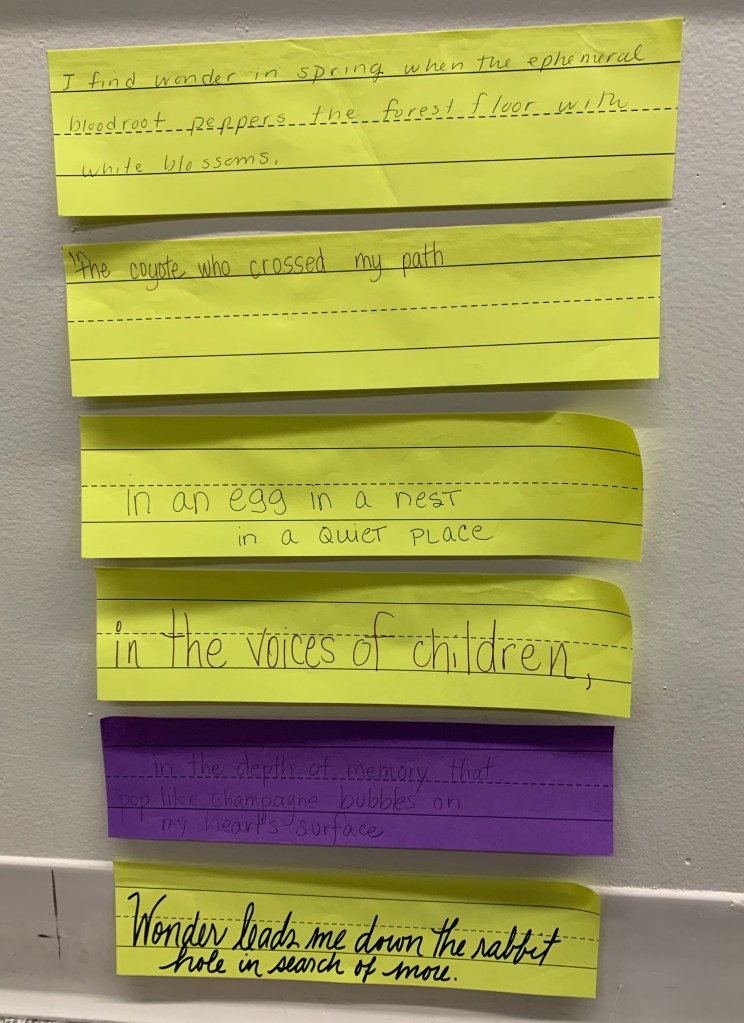 I find wonder in spring when the ephemeral
bloodroot peppers the forest floor with
white blossoms.
The coyote who crossed my path
In an egg in a nest
in a quiet place
in the voices of children,
in the depth of memory that
pop like champagne bubbles on
my heart's surface
Wonder leads me down the rabbit
hole in search of more.